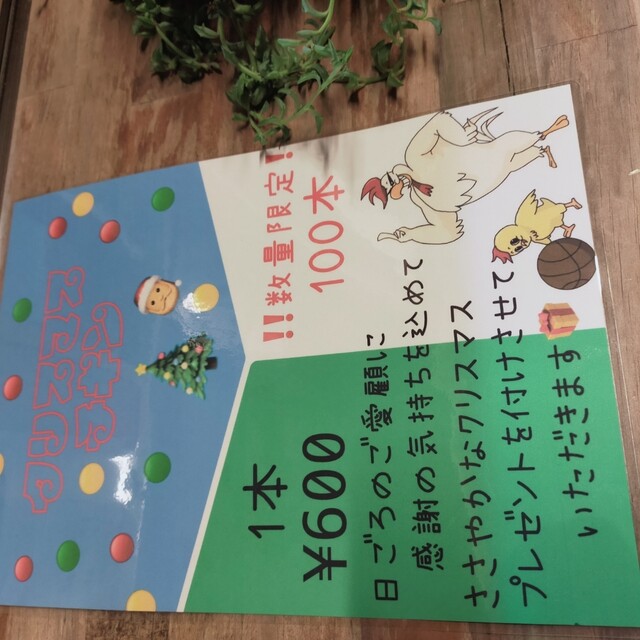 クリスマス
チキン
!!数量限定!!
100本
1本
¥600
日ごろのご愛顧に
感謝の気持ちを込めて
ささやかなクリスマス
プレゼントを付けさせて
いただきます